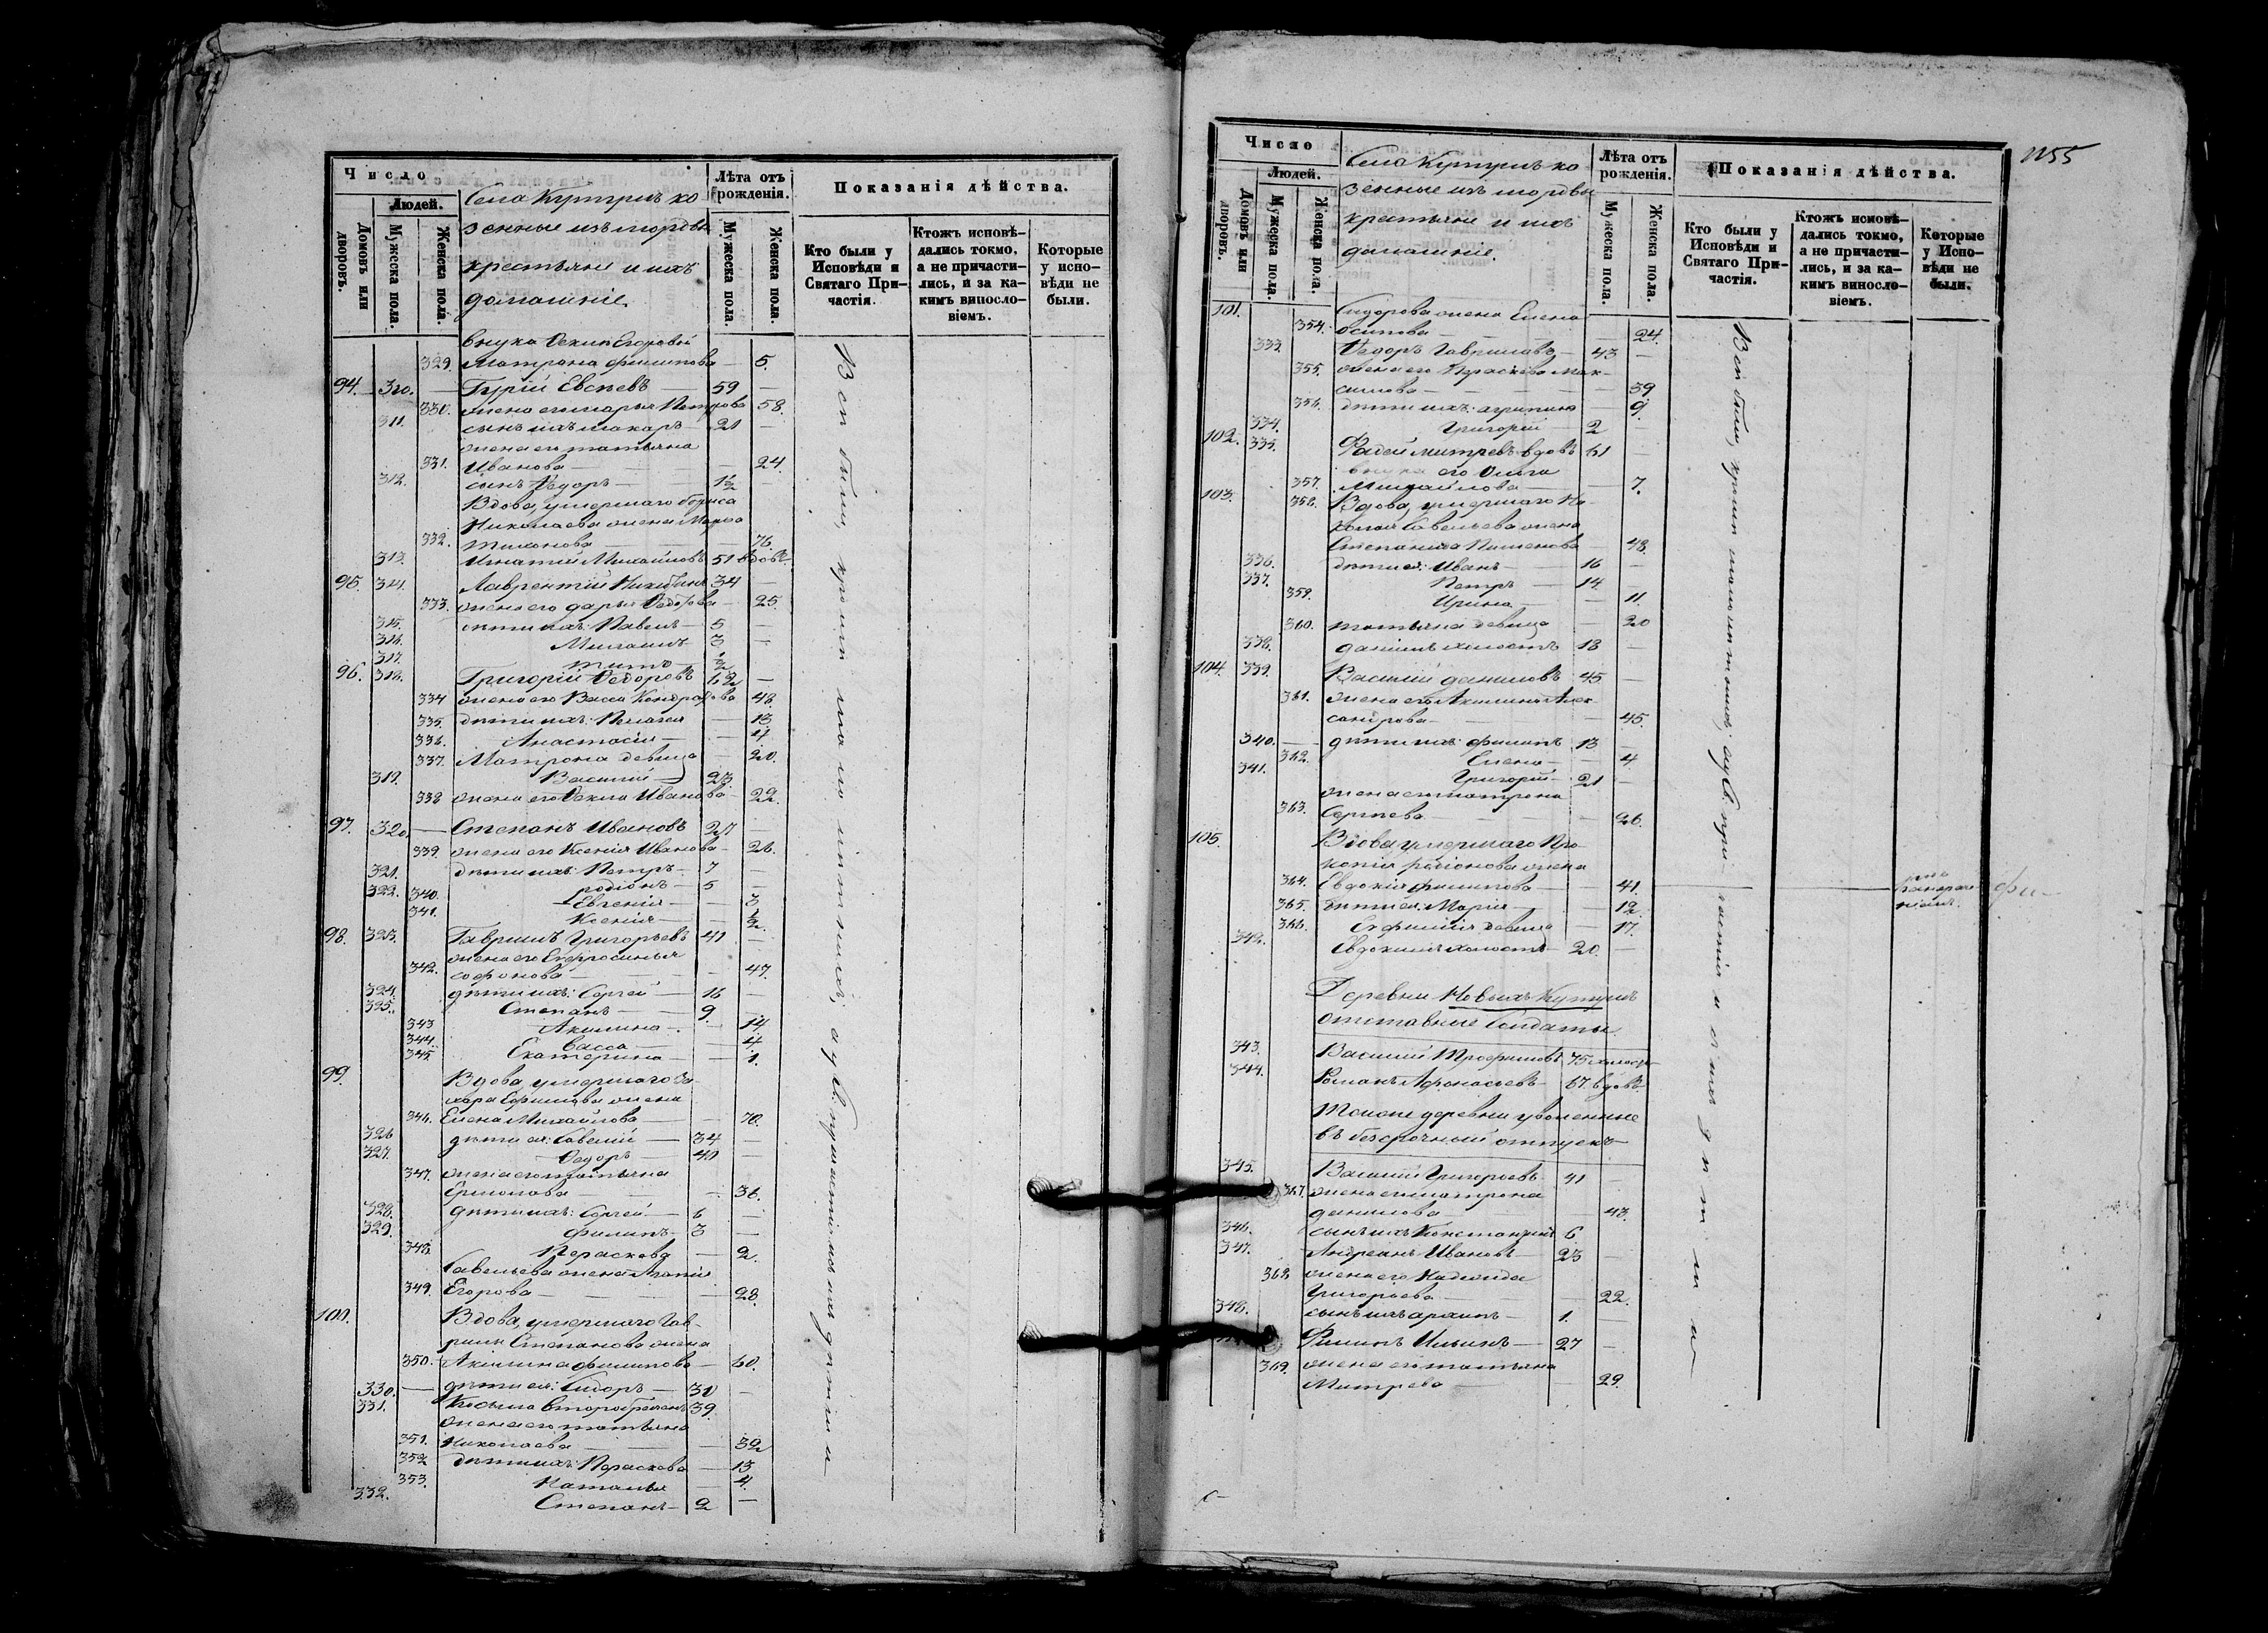 Число
Людей.
Домовъ или дворовъ.
Мужеска пола.
Женска пола.
Села Кутушъ ка
зенные изъ мордвы
крестьяне и ихъ
домашніе.
Лѣта отъ рожденія.
Мужеска пола.
Женска пола.
Показанія дѣйства.
Кто были у Исповѣди и Святаго Причастія.
Ктожъ исповѣдались токмо, а не причастились, и за какимъ винословіемъ.
Которые у исповѣди не были.
внука Ѳекли Егоровой
329. Матрона Филипова — 5.
94. 310. — Гурій Евсѣевъ — 59 —
330. жена его Марья Петрова 58.
311. сынъ ихъ Макаръ — 21 —
жена его Татьяна
331. Иванова — — 24.
312. сынъ Ѳедоръ — 1½ —
Вдова, умершаго Бориса
Николаева жена Марья
332. Тихонова — 76.
313. Игнатій Михайловъ 51 вдовъ.
95. 314. Лаврентій Никитинъ 34 —
333. жена его Дарья Ѳедотова — 25.
315. дѣти ихъ: Павелъ — 5 —
316. Михаилъ 3 —
317. Титъ — ½
96. 318. Григорій Ѳедоровъ 62 —
334 жена его Васса Кондратова 48.
335. дѣти ихъ: Пелагея — 13.
336. Анастасія — — 4.
337. Матрона девица — 20.
319. Василій — 23
338 жена его Ѳекла Иванова — 22.
97. 320. — Степанъ Ивановъ 27 —
339. жена его Ксенія Иванова — 26.
321. дѣти ихъ: Петръ — 7 —
322. родіонъ — 5 —
340. Евгенія — — 3
341. Ксенія — — ½
98. 323. Гаврилъ Григорьевъ 41 —
жена его Евфросинья
342. Софонова — — 47.
324. дѣти ихъ: Сергей — 16 —
325. Степанъ — 9. —
343 Акилина — — 14.
344. Васса — — 4.
345. Екатерина — — 1.
99. Вдова, умершаго За
хара Ефимова жена
346. Елена Михайлова — — 70.
326 дѣти ея: Савелій — 34 —
327. Ѳедоръ — 40 —
347. жена его Татьяна
Ермолова — — 36.
328. дѣти ихъ: Сергей — 6 —
329. Филипъ — 3 —
348. Параскева — 2.
Савельева жена Агапія
349. Егорова — — 28.
100. Вдова, умершаго Гав
рилы Степанова жена
350. Акилина Филипова — 60.
330. — дѣти ея: Сидоръ — 30 —
331. Косьма второбрачн 39.
жена его Татьяна
351. Николаева — — 32
352 дѣти ихъ: Параскева — 13
353. Наталья — 4.
332. Степанъ — 2 —
1155
Число
Людей.
Домовъ или дворовъ.
Мужеска пола.
Женска пола.
Села Кутушъ ка
зенные изъ мордвы
крестьяне и ихъ
домашніе.
Лѣта отъ рожденія.
Мужеска пола.
Женска пола.
Показанія дѣйства.
Кто были у Исповѣди и Святаго Причастія.
Ктожъ исповѣдались токмо, а не причастились, и за какимъ винословіемъ.
Которые у Исповѣди не были.
101. Сидорова жена Елена
354. Осипова — — 24.
333. Ѳедоръ Гавриловъ — 43 —
355. жена его Параскева Мак-
симова — — 39
356. дѣти ихъ: Агрипина — 9.
334. Григорій — 2
102. 335. Фадей Митревъ вдовъ 61 —
внука его Ольга
357. Михайлова — — 7.
103. 358. Вдова, умершаго Ни
колая Савельева жена
Степанида Пименова — 48.
336. дѣти ея: Иванъ — 16 —
337. Петръ — 14 —
359. Ирина — — 11.
360. Татьяна девица — 20
338. Данилъ холостъ 18 —
104. 339. Василій Даниловъ 45 —
361. жена его Акилина Алек-
сандрова — — 45.
340. — дѣти ихъ: Филипъ 13 —
362. Елена — — 4
341. Григорій — 21 —
жена его Матрона
363. Сергеева — — 26.
105. Вдова, умершаго Про
копія родіонова жена
364. Евдокія Филипова — — 41.
365. дѣти ея: Марія — — 12.
366. Евфимія девица — 17.
342. Евдокимъ холостъ — 20. —
Деревни Новыхъ Кутушъ
отставные Солдаты
343. Василій Трофимовъ 75 холостъ
344. Романъ Афонасьевъ — 67. вдовъ
Тойже деревни уволенные
въ безсрочный отпускъ
345. Василій Григорьевъ 41 —
367. жена его Матрона
Данилова — — 43.
346. сынъ ихъ Константинъ 6.
347. Андреянъ Ивановъ — 23 —
368. жена его Надежда
Григорьева — — 22.
348. сынъ ихъ Архипъ — 1. —
Филипъ Ильинъ — 27 —
369. жена его Татьяна
Митрева — — 29.